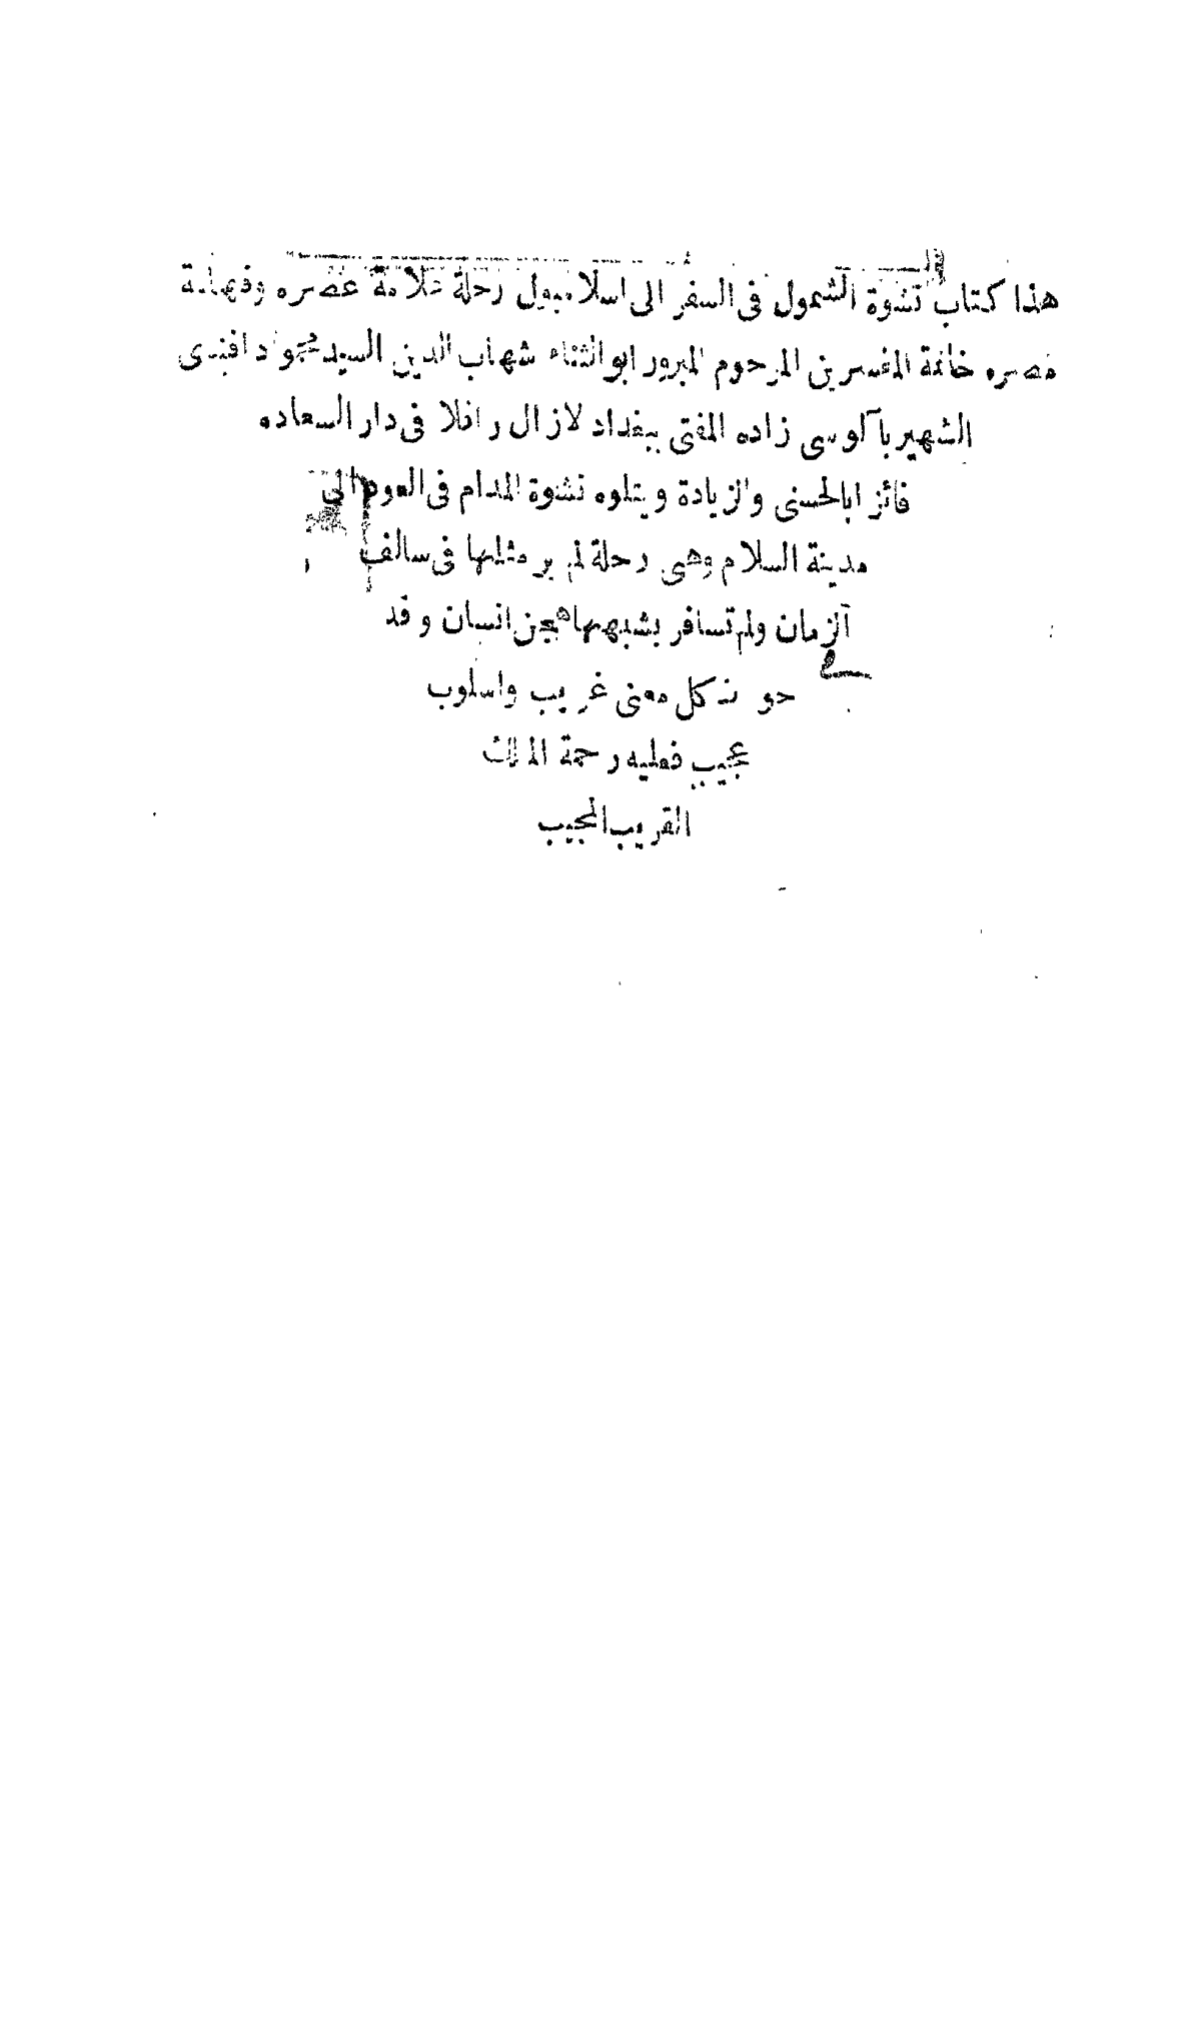 هذا كتاب نشوة الشمول فى السفر الى اسلامبول رحلة علامة عصره وفهامة
مصره خاتمة المفسرين المرحوم المبرور ابو الثناء شهاب الدين السيد محمود افندى
الشهير بآلوسى زاده المفتى ببغداد لازال رافلا فى دار السعاده
فائزا بالحسنى والزيادة ويتلوه نشوة المدام فى العود الى
مدينة السلام وهى رحلة لم ير مثلها فى سالف
الزمان ولم تسافر بشبهها هجن انسان وقد
حوت كل معنى غريب واسلوب
عجيب فعليه رحمة الملك
القريب المجيب